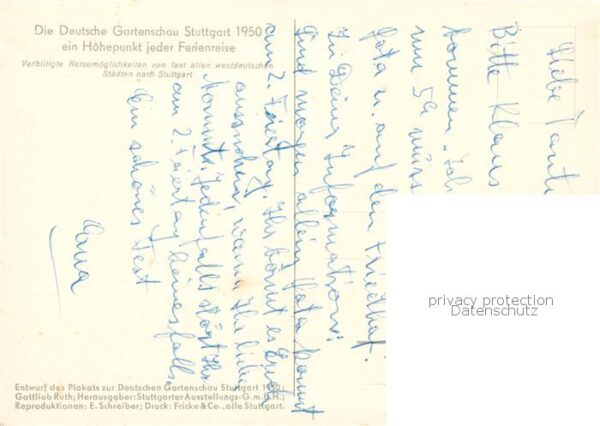 Die Deutsche Gartenschau Stuttgart 1950
ein Höhepunkt jeder Ferienreise
Verbilligte Reisemöglichkeiten von fast allen westdeutschen
Städten nach Stuttgart
Liebe Tant
Bitte Klaus
kommen. Ich
um 5h müss
fata u. auf den Friedhof.
Zu Deiner Information:
sind morgen allein fata kommt
am 2. Feiertag. Ihr könnt es Euch
aussuchen, wann Ihr lieber
kommt. Jedenfalls stört Ihr
am 2. Feiertag keinesfalls.
Ein schönes Fest
Entwurf des Plakats zur Deutschen Gartenschau Stuttgart 1950:
Gottlieb Ruth; Herausgeber: Stuttgarter Ausstellungs-G.m.b.H.;
Reproduktionen: E. Schreiber; Druck: Fricke & Co., alle Stuttgart.
privacy protection
Datenschutz